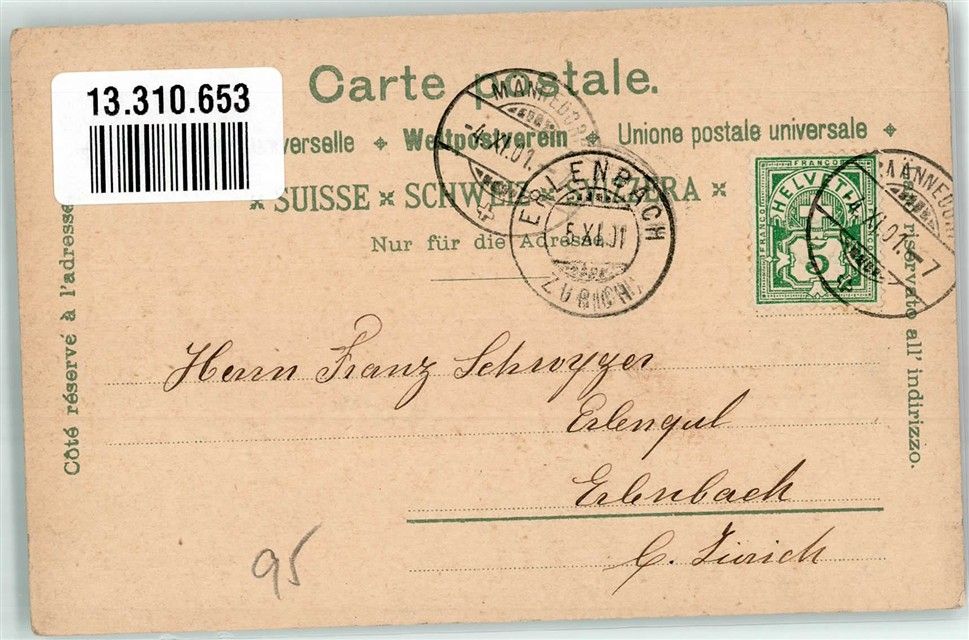 13.310.653
Carte postale.
verselle ✦ Weltpostverein ✦ Unione postale universale ✦
SUISSE × SCHWEIZ SVIZZERA ×
Nur für die Adresse.
Côté réservé à l'adresse
riservato all' indirizzo.
MÄNNEDORF
-4.XI.01.
ERLENBACH
5.XI.01
ZÜRICH
FRANCO
HELVETIA
FRANCO
FRANCO
5
MÄNNEDORF
-4.XI.01.-7
Herrn Franz Schwyzer
Erlengut
Erlenbach
C. Zürich
95